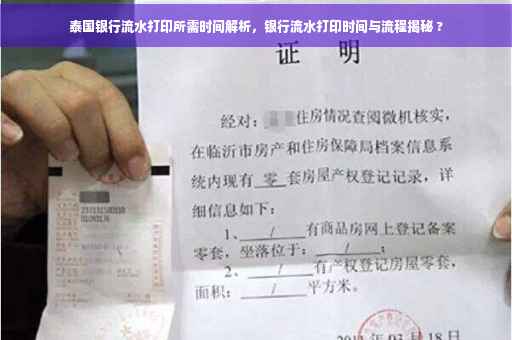 泰国银行流水打印所需时间解析，银行流水打印时间与流程揭秘？
证 明
经对：住房情况查阅微机核实，
在临沂市房产和住房保障局档案信息系
统内现有 零 套房屋产权登记记录，详
细信息如下：
1、 / 有商品房网上登记备案
零套，坐落位于： / ；
2、 / 有产权登记房屋零套，
面积： / 平方米。
03月18日